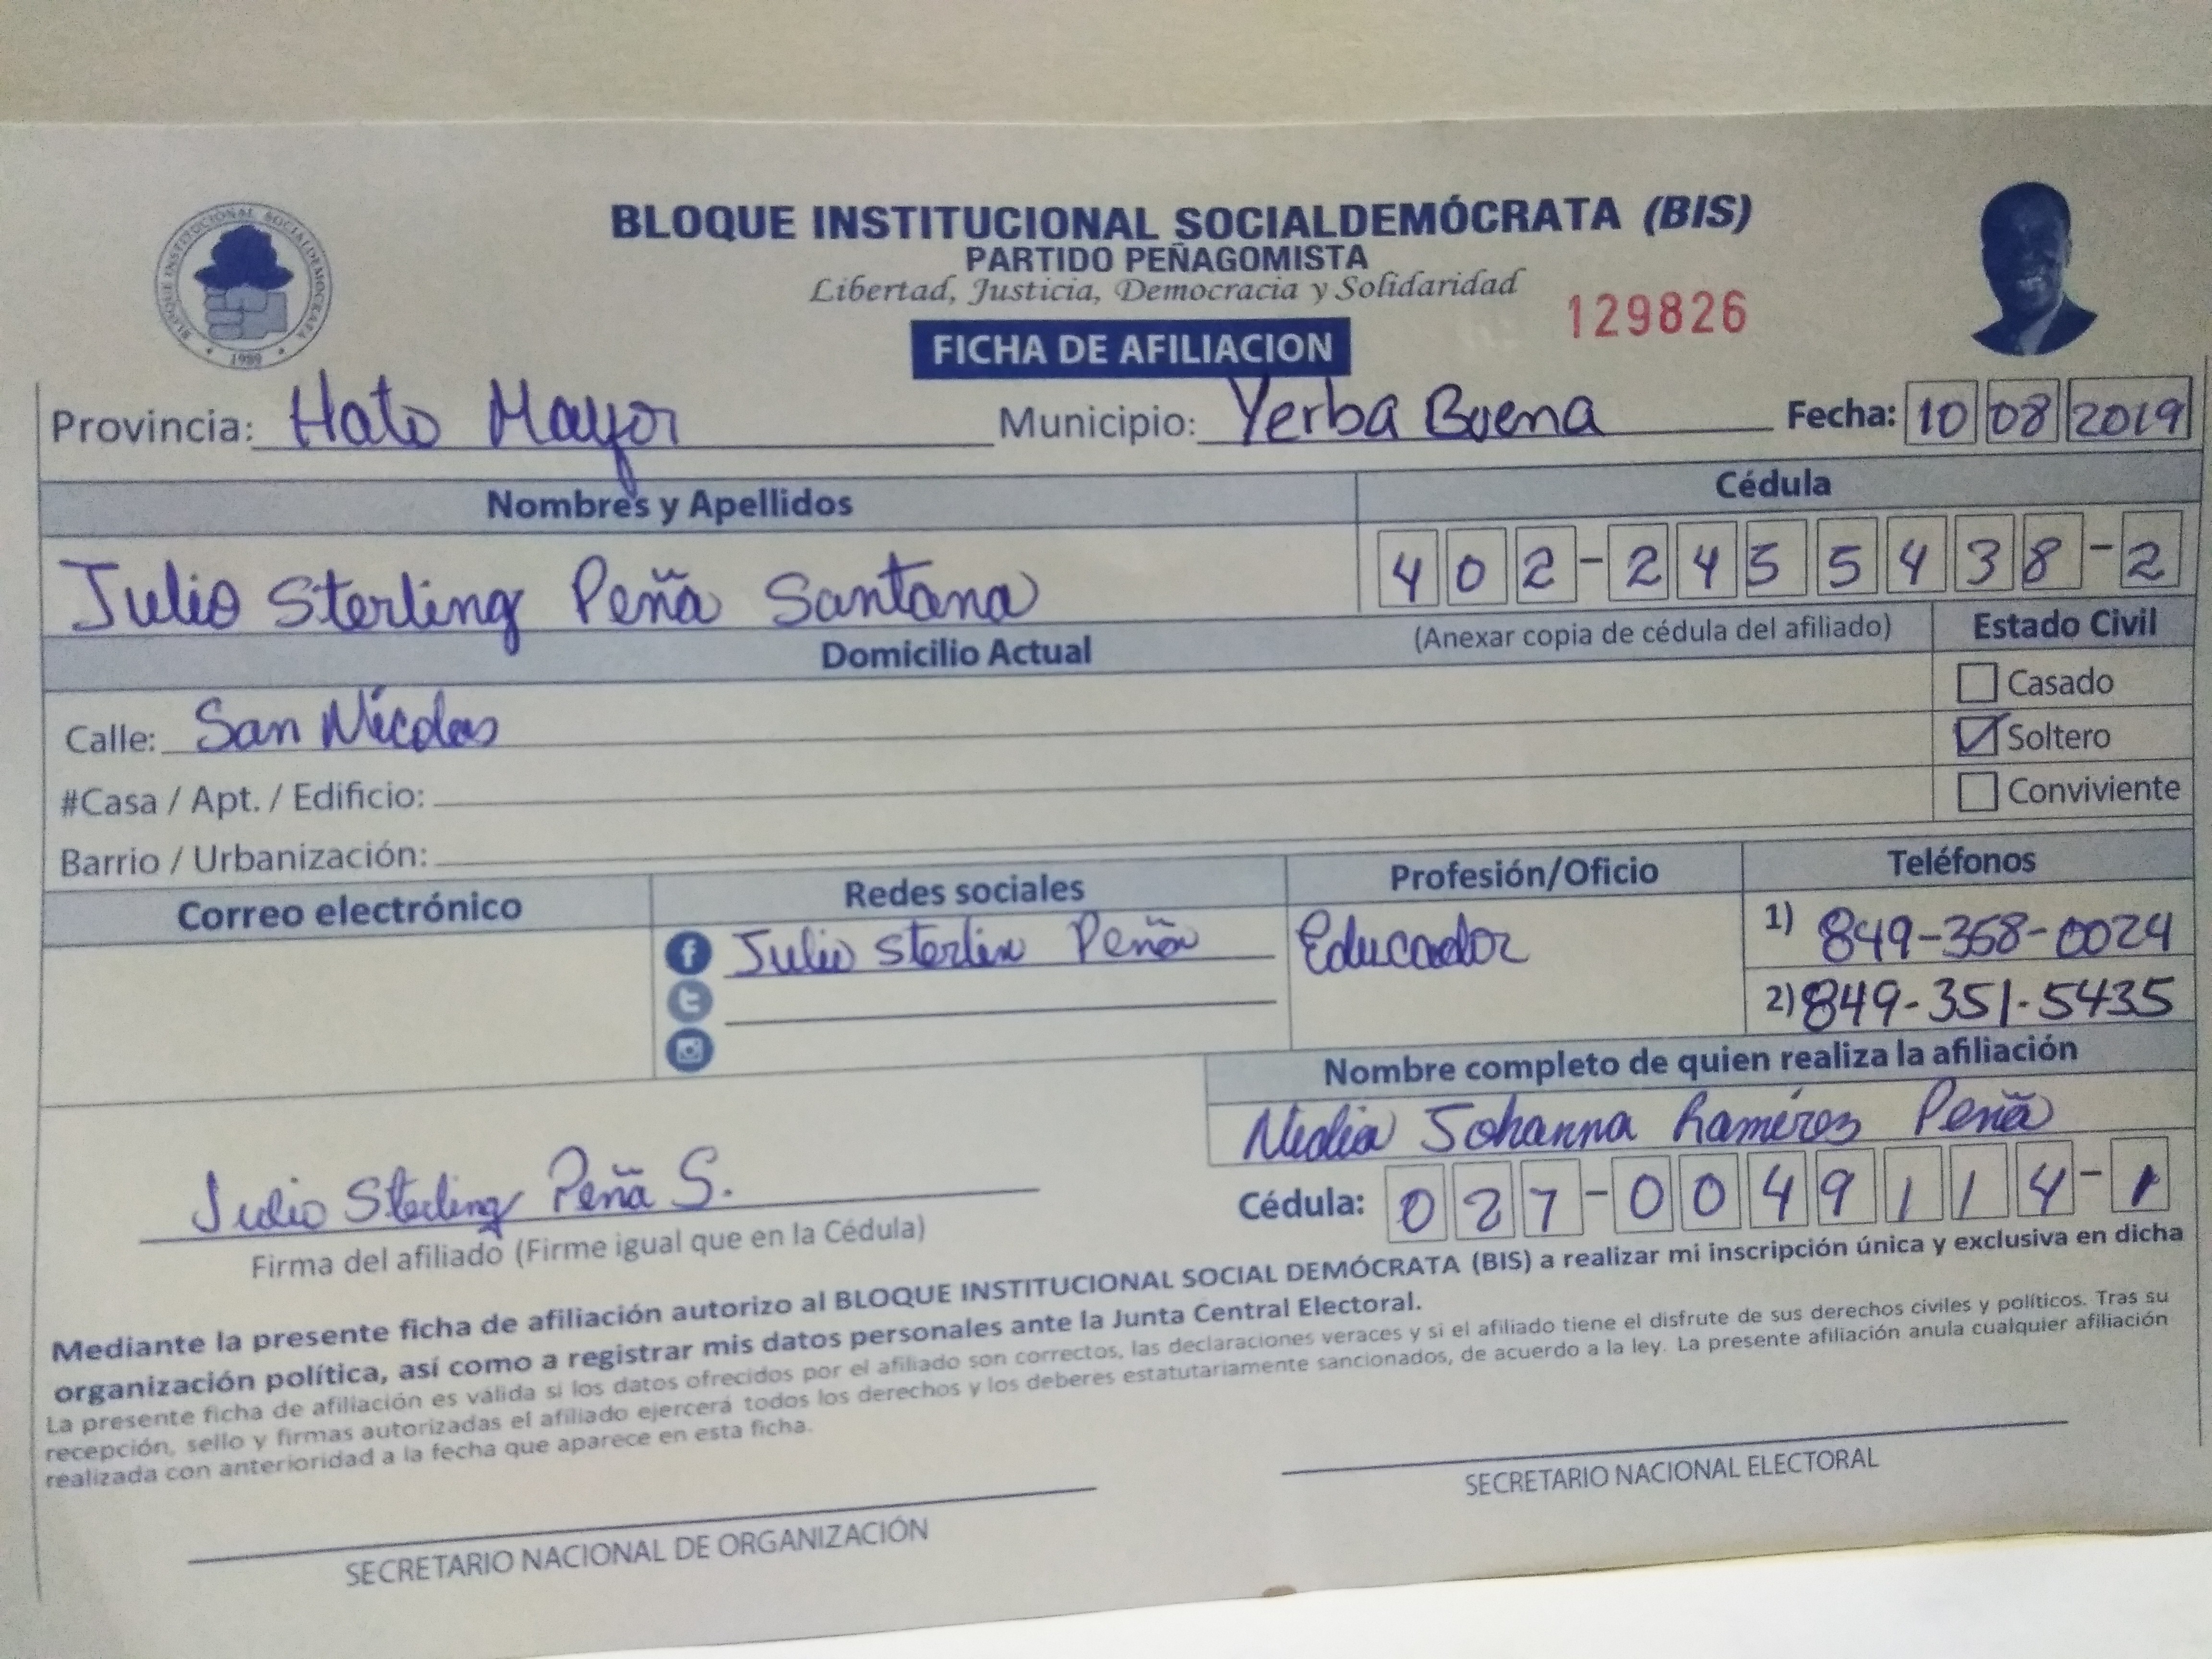 BLOQUE INSTITUCIONAL SOCIALDEMOCRATA
1989
BLOQUE INSTITUCIONAL SOCIALDEMÓCRATA (BIS)
PARTIDO PEÑAGOMISTA
Libertad, Justicia, Democracia y Solidaridad
129826
FICHA DE AFILIACION
Provincia: Hato Mayor Municipio: Yerba Buena Fecha: 10 08 2019
Nombres y Apellidos Cédula
Julio Sterling Peña Santana 402-2455438-2
Domicilio Actual (Anexar copia de cédula del afiliado) Estado Civil
Casado
Calle: San Nicolas Soltero
#Casa / Apt. / Edificio: Conviviente
Barrio / Urbanización:
Correo electrónico Redes sociales Profesión/Oficio Teléfonos
Julio Sterlin Peña Educador 1) 849-368-0024
2) 849-351-5435
Nombre completo de quien realiza la afiliación
Johanna Ramírez Peña
Julio Sterling Peña S. Cédula: 027-0049114-1
Firma del afiliado (Firme igual que en la Cédula)
Mediante la presente ficha de afiliación autorizo al BLOQUE INSTITUCIONAL SOCIAL DEMÓCRATA (BIS) a realizar mi inscripción única y exclusiva en dicha
organización política, así como a registrar mis datos personales ante la Junta Central Electoral.
La presente ficha de afiliación es válida si los datos ofrecidos por el afiliado son correctos, las declaraciones veraces y si el afiliado tiene el disfrute de sus derechos civiles y políticos. Tras su
recepción, sello y firmas autorizadas el afiliado ejercerá todos los derechos y los deberes estatutariamente sancionados, de acuerdo a la ley. La presente afiliación anula cualquier afiliación
realizada con anterioridad a la fecha que aparece en esta ficha.
SECRETARIO NACIONAL DE ORGANIZACIÓN SECRETARIO NACIONAL ELECTORAL